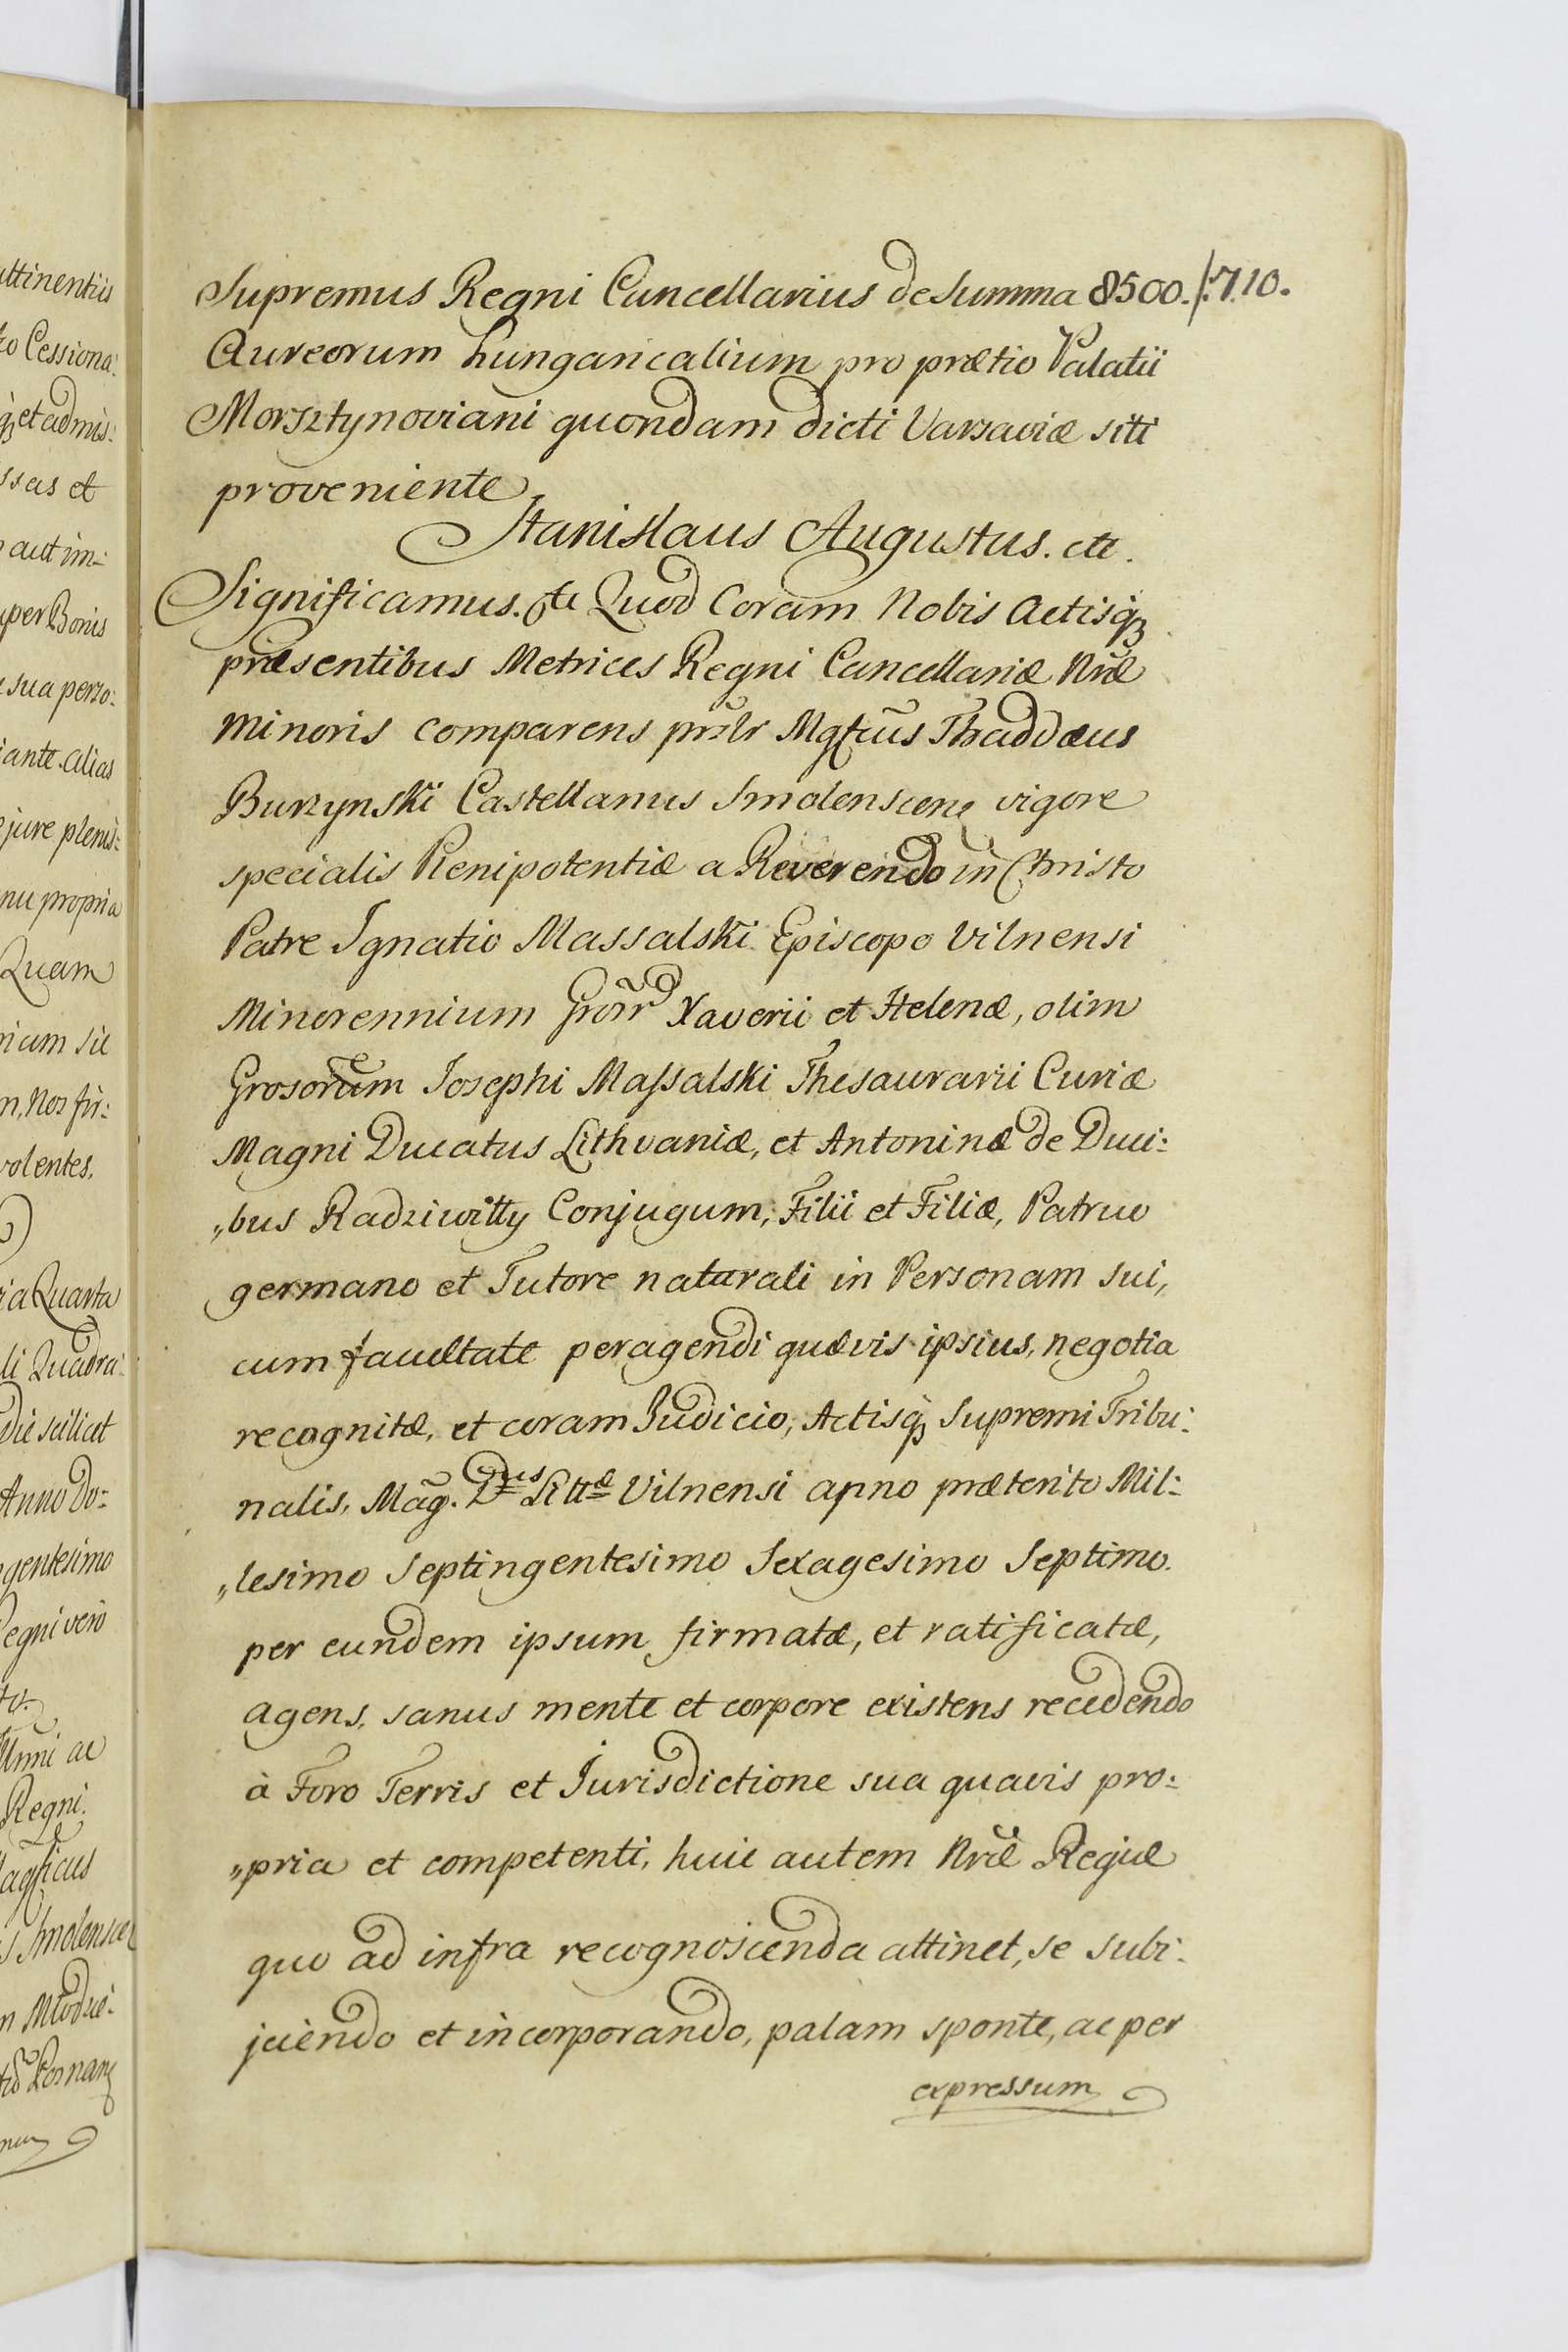 Supremus Regni Cancellarius de Summa 8500./.710.
Aureorum hungaricalium pro prætio Palatii
Morsztynoviani quondam dicti Varsaviæ siti
proveniente
Stanislaus Augustus. etc.
Significamus. etc Quod Coram Nobis Actisq́
præsentibus Metrices Regni Cancellariæ Nræ
minoris comparens prslr Mgfcus Thaddæus
Burzynski Castellanus Smolenscen. vigore
specialis Plenipotentiæ a Reverendo in Christo
Patre Ignatio Massalski Episcopo Vilnensi
Minorennium Gror Xaverii et Helenæ, olim
Grosorum Josephi Massalski Thesaurarii Curiæ
Magni Ducatus Lithvaniæ, et Antoninæ de Duci:
„bus Radziwiłły Conjugum, Filii et Filiæ, Patruo
germano et Tutore naturali in Personam sui,
cum facultate peragendi quævis ipsius, negotia
recognitæ, et coram Judicio, Actisq́ Supremi Tribu:
nalis, Mag. Dus Littæ Vilnensi anno præterito Mil:
„lesimo Septingentesimo Sexagesimo Septimo.
per eundem ipsum firmatæ, et ratificatæ,
agens, sanus mente et corpore existens recedendo
à Foro Terris et Jurisdictione sua quavis pro:
„pria et competenti, huic autem Nræ Regiæ
quo ad infra recognoscenda attinet, se subi:
jciendo et incorporando, palam sponte, ac per
expressum
attinentiis
Cessiona:
et admis:
et
aut im:
Bonis
sua perso:
alias
jure plenis:
propria
Quam
Nos fir:
volentes.
Quarta
Quadra:
scilicet
Anno Do:
vero
ac
Regni.